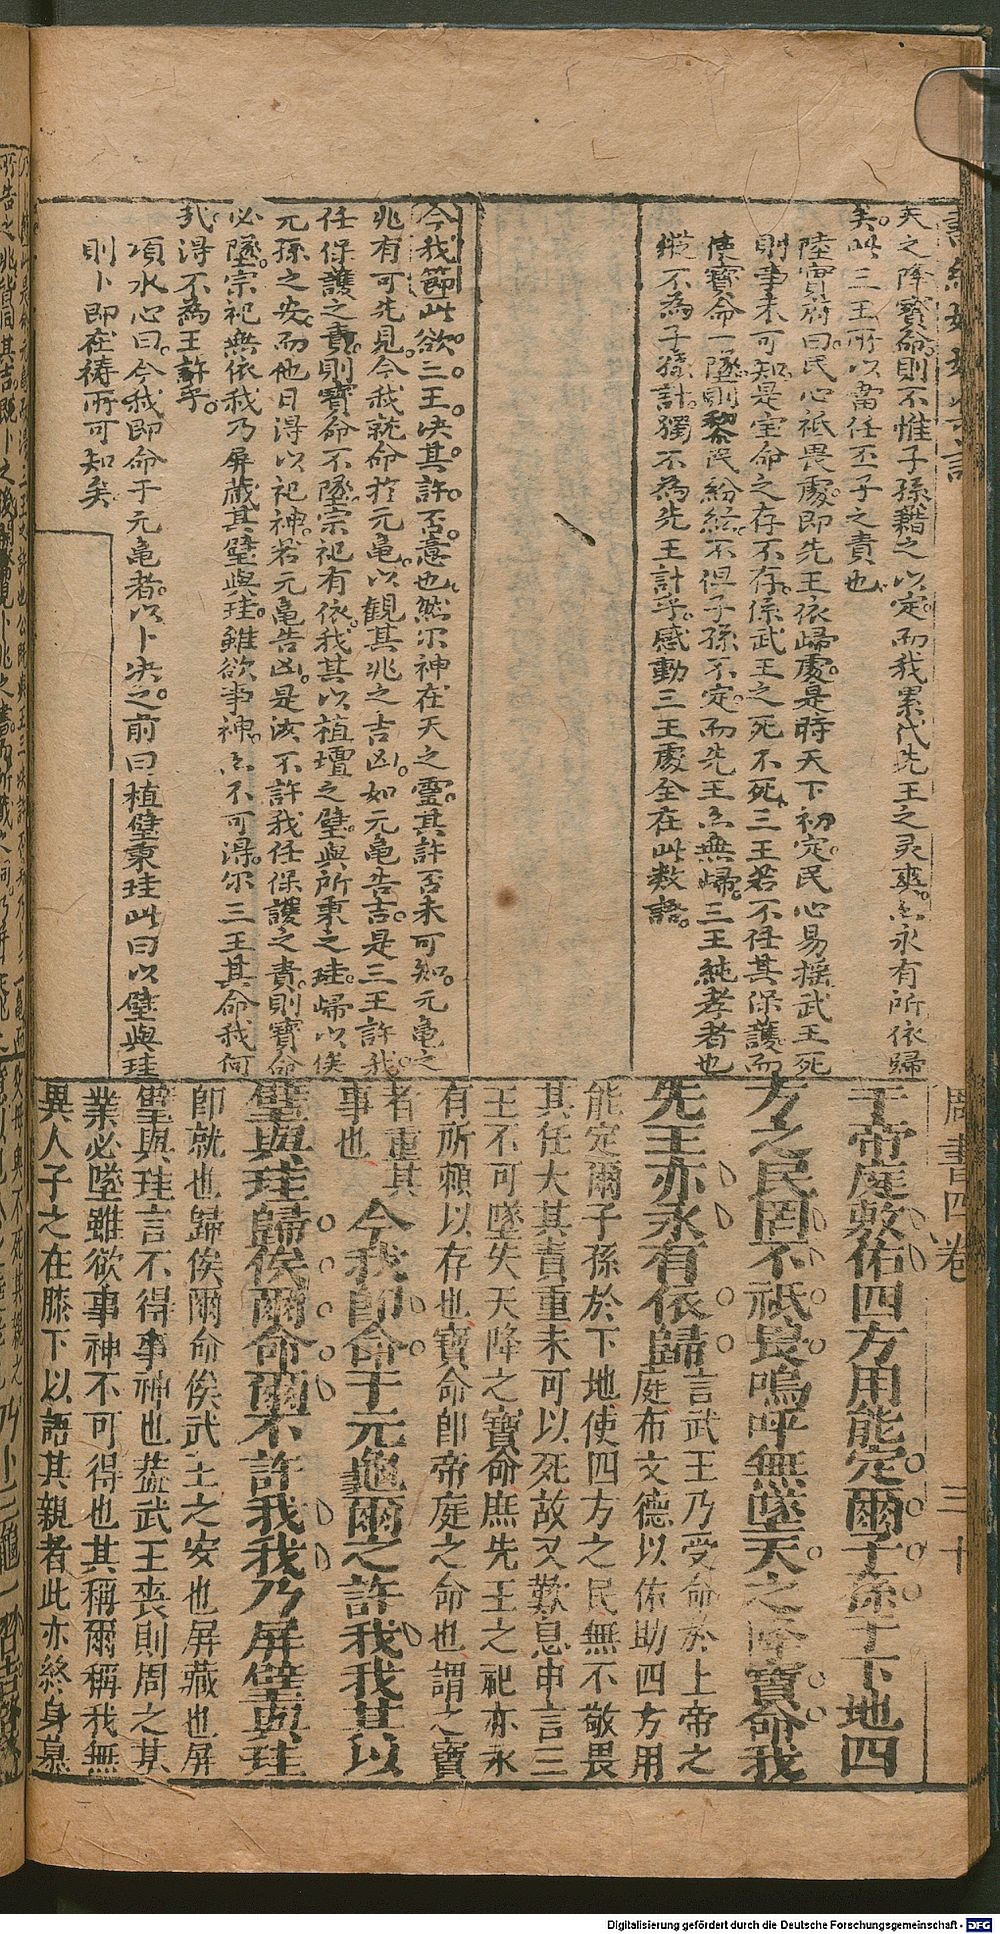 天之降寳命則不惟子孫藉之以定而我累代先王之灵爽亦永有所依歸
矣此三王所以當任丕子之責也
陸實府曰民心祇畏處即先王依歸處是時天下初定民心易摇武王死
則事未可知是宝命之存不存係武王之死不死三王若不任其保護而
使寳命一墜則黎民紛紜不但子孫不定而先王亦無歸三王純孝者也
縦不為子孫計獨不為先王計乎感動三王處全在此数語
今我節此欲三王决其許否意也然尔神在天之靈其許否未可知元亀之
兆有可先見今我就命於元亀以觀其兆之吉凶如元亀告吉是三王許我
任保護之責則寳命不墜宗祀有依我其以植壇之璧與所秉之珪歸以俟
元孫之安而他日得以祀神若元亀告凶是汝不許我任保護之責則寳命
必墜宗祀無依我乃屏藏其璧與珪雖欲事神亦不可得尔三王其命我何
我得不為王許乎
項水心曰今我即命于元亀者以卜决之前曰植璧秉珪此曰以璧與珪
則卜即在祷所可知矣
周書四卷
三十
于帝庭敷佑四方用能定爾子孫于下地四
方之民罔不祇畏嗚呼無墜天之降寳命我
先王亦永有依歸
言武王乃受命於上帝之
庭布文德以佑助四方用
能定爾子孫於下地使四方之民無不敬畏
其任大其責重未可以死故又歎息申言三
王不可墜失天降之寳命庶先王之祀亦永
有所賴以存也寳命即帝庭之命也謂之寳
者重其
事也
今我即命于元龜爾之許我我其以
璧與珪歸俟爾命爾不許我我乃屏璧與珪
即就也歸俟爾命俟武王之安也屏藏也屏
璧與珪言不得事神也葢武王喪則周之基
業必墜雖欲事神不可得也其稱爾稱我無
異人子之在膝下以語其親者此亦終身慕
Digitalisierung gefördert durch die Deutsche Forschungsgemeinschaft - DFG